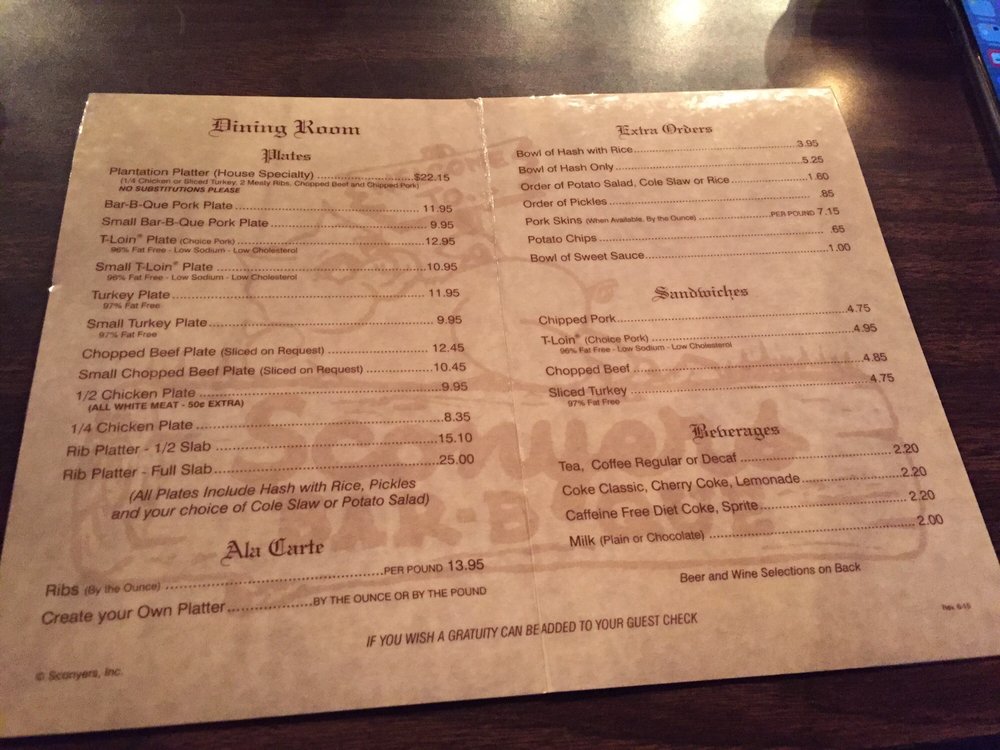 Dining Room
Plates
Plantation Platter (House Specialty)..............$22.15
(1/4 Chicken or Sliced Turkey, 2 Meaty Ribs, Chopped Beef and Chipped Pork)
NO SUBSTITUTIONS PLEASE
Bar-B-Que Pork Plate 11.95
Small Bar-B-Que Pork Plate 9.95
T-Loin® Plate (Choice Pork) 12.95
96% Fat Free - Low Sodium - Low Cholesterol
Small T-Loin® Plate 10.95
96% Fat Free - Low Sodium - Low Cholesterol
Turkey Plate 11.95
97% Fat Free
Small Turkey Plate 9.95
97% Fat Free
Chopped Beef Plate (Sliced on Request) 12.45
Small Chopped Beef Plate (Sliced on Request) 10.45
1/2 Chicken Plate 9.95
(ALL WHITE MEAT - 50¢ EXTRA)
1/4 Chicken Plate 8.35
Rib Platter - 1/2 Slab 15.10
Rib Platter - Full Slab 25.00
(All Plates Include Hash with Rice, Pickles
and your choice of Cole Slaw or Potato Salad)
Ala Carte
Ribs (By the Ounce) PER POUND 13.95
Create your Own Platter BY THE OUNCE OR BY THE POUND
Extra Orders
Bowl of Hash with Rice 3.95
Bowl of Hash Only 5.25
Order of Potato Salad, Cole Slaw or Rice 1.60
Order of Pickles .85
Pork Skins (When Available, By the Ounce) PER POUND 7.15
Potato Chips .65
Bowl of Sweet Sauce 1.00
Sandwiches
Chipped Pork 4.75
T-Loin® (Choice Pork) 4.95
96% Fat Free - Low Sodium - Low Cholesterol
Chopped Beef 4.85
Sliced Turkey 4.75
97% Fat Free
Beverages
Tea, Coffee Regular or Decaf 2.20
Coke Classic, Cherry Coke, Lemonade 2.20
Caffeine Free Diet Coke, Sprite 2.20
Milk (Plain or Chocolate) 2.00
Beer and Wine Selections on Back
IF YOU WISH A GRATUITY CAN BE ADDED TO YOUR GUEST CHECK
© Sconyers, Inc.
Sconyers
BAR-B-QUE